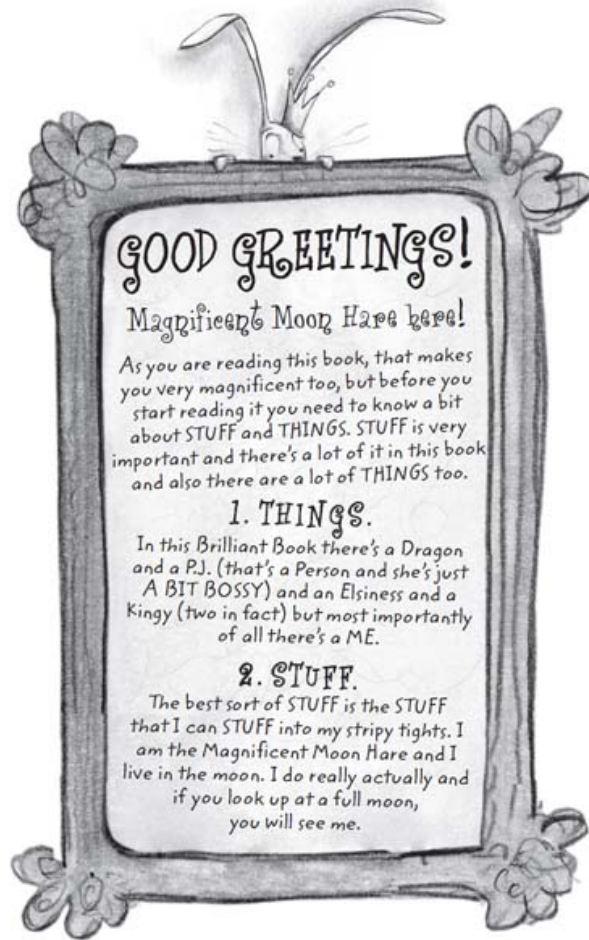 GOOD GREETINGS!
Magnificent Moon Hare here!
As you are reading this book, that makes
you very magnificent too, but before you
start reading it you need to know a bit
about STUFF and THINGS. STUFF is very
important and there's a lot of it in this book
and also there are a lot of THINGS too.
1. THINGS.
In this Brilliant Book there's a Dragon
and a P.J. (that's a Person and she's just
A BIT BOSSY) and an Elsiness and a
Kingy (two in fact) but most importantly
of all there's a ME.
2. STUFF.
The best sort of STUFF is the STUFF
that I can STUFF into my stripy tights. I
am the Magnificent Moon Hare and I
live in the moon. I do really actually and
if you look up at a full moon,
you will see me.